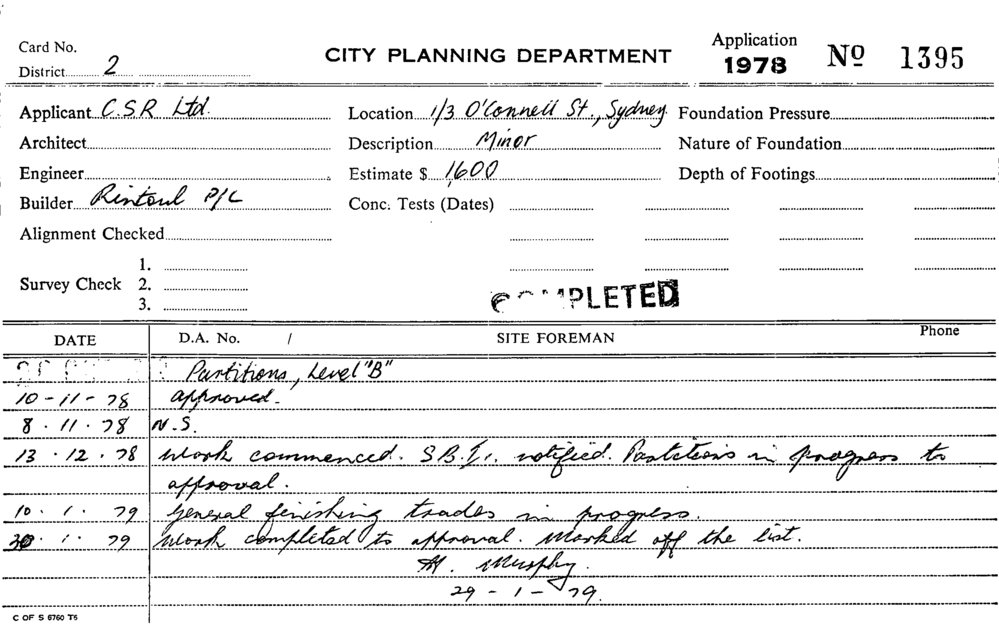 Card No.
District 2
CITY PLANNING DEPARTMENT
Application
1978
Nº 1395
Applicant C.S.R Ltd.
Location 1/3 O'Connell St., Sydney
Foundation Pressure
Architect
Description Minor
Nature of Foundation
Engineer
Estimate $ 1,600
Depth of Footings
Builder Rintoul P/L
Conc. Tests (Dates)
Alignment Checked
Survey Check 1.
2.
3.
COMPLETED
DATE D.A. No. / SITE FOREMAN Phone
Partitions, Level "B"
10-11-78 approved.
8.11.78 N.S.
13.12.78 Work commenced. S.B.I. notified. Partitions in progress to
approval.
10.1.79 General finishing trades in progress.
30.1.79 Work completed to approval. Marked off the list.
M. Murphy.
29-1-79.
C OF S 6760 T5